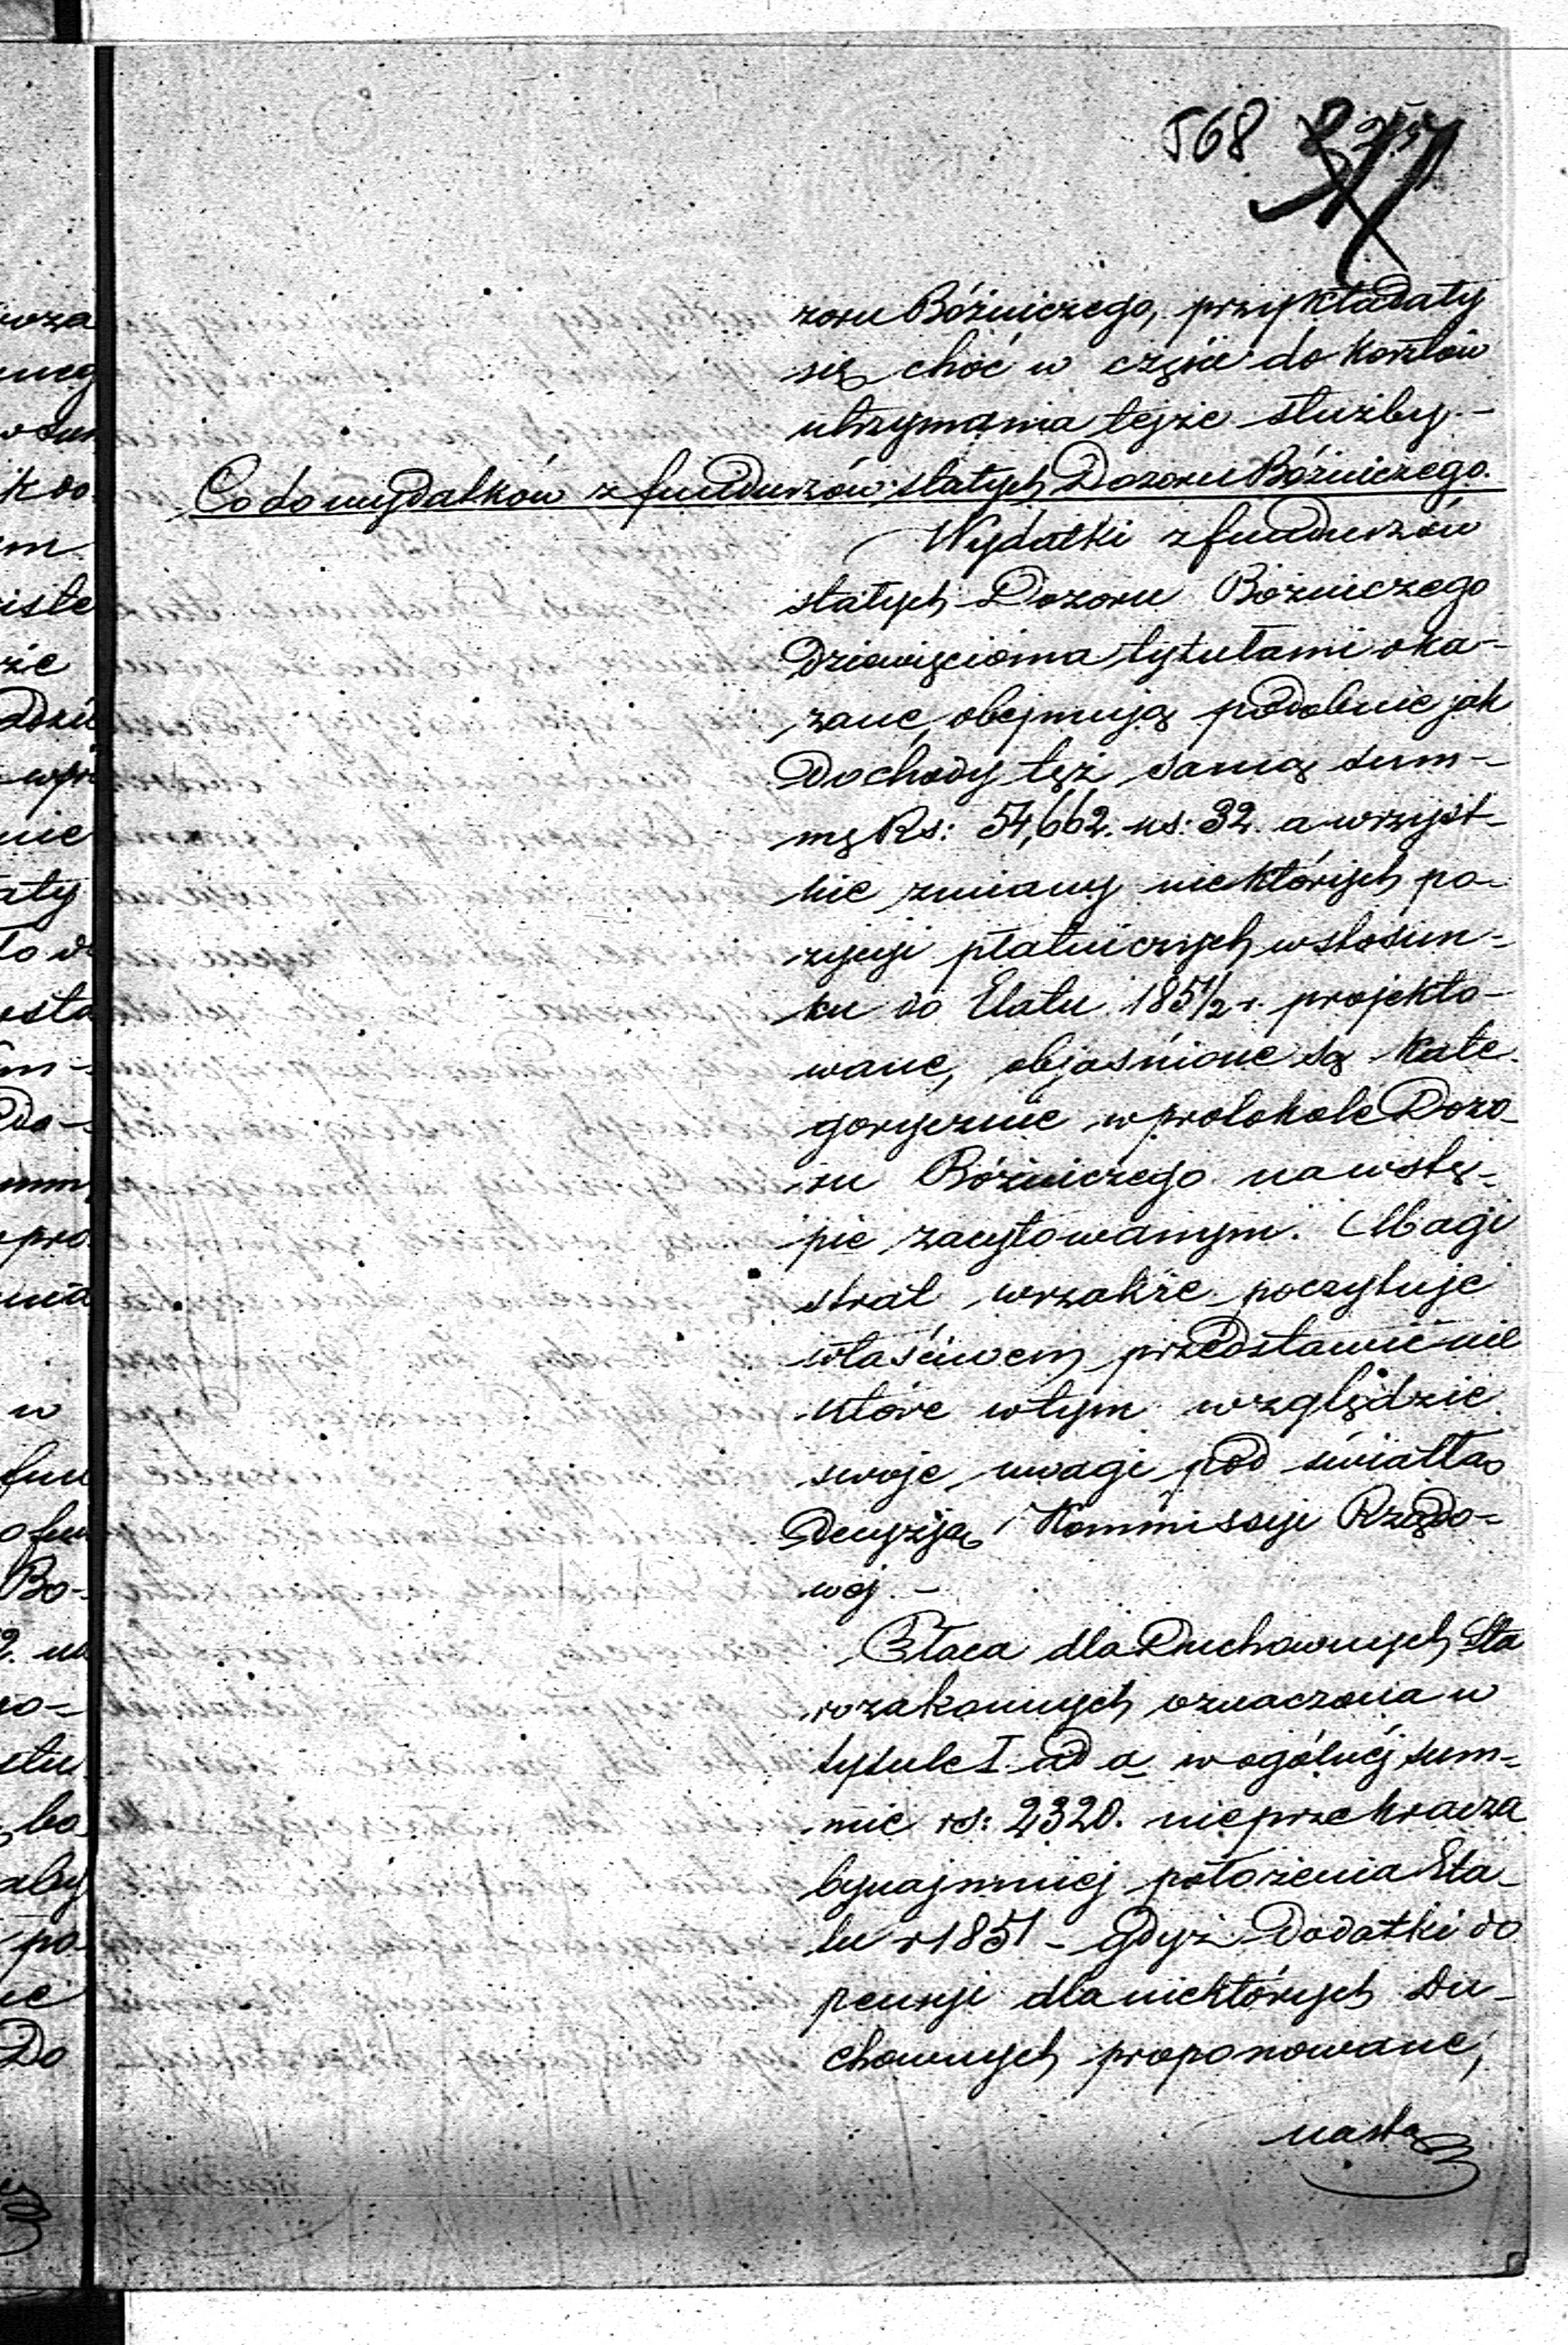 568
zoru Bóżniczego, przykładały
się choć w części do kosztów
utrzymania tejże służby.-
Co do wydatków z funduszów stałych Dozoru Bóżniczego.
Wydatki z funduszów
stałych Dozoru Bóżniczego
Dziewięcioma tytułami oka-
zane, obejmują podobnie jak
Dochody też samą sum-
mę Rs: 54,662. ks: 32. a wszyst-
kie zmiany niektórych po-
zycyi płatniczych w stosun-
ku do Etatu 1851/2 r. projekto-
wane, objaśnione są kate-
gorycznie w protokole Dozo-
ru Bóżniczego na wstę-
pie zacytowanym. Magi
strat wszakże poczytuje
właściwem przedstawić nie
które w tym względzie
swoje uwagi pod światłą
Decyzją Kommissyi Rządo-
wéj.-
Płaca dla Duchownych Sta
rozakonnych oznaczona w
tytule I. ad a w ogólnéj sum-
mie rs: 2320. nieprzekracza
bynajmniej położenia Eta-
tu r 1851 - gdyż Dodatki do
pensyi dla niektórych Du-
chownych proponowane,
nastą